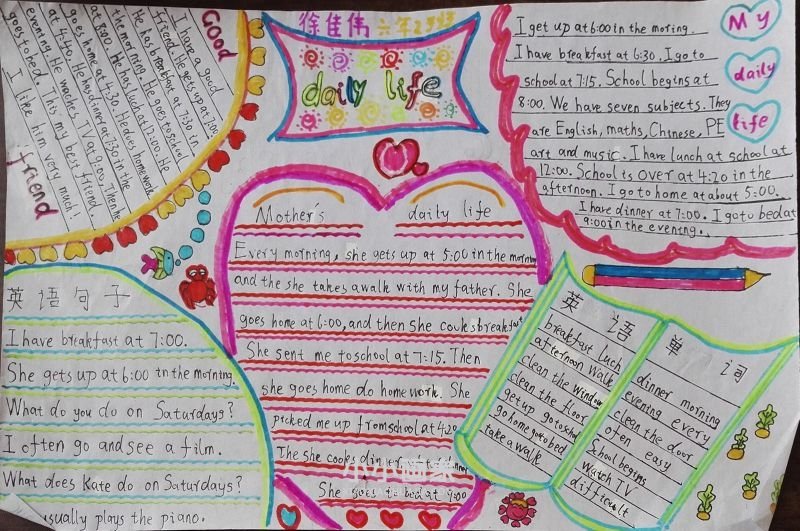 徐佳伟 六年2班
daily life
Good
friend
I have a good
friend. He gets up at 7:00.
He has breakfast at 7:30 in
the morning. He goes to school
at 8:00. He has luch at 12:00. He
goes home at 4:30. He does home work
at 4:40. He has dinner at 7:30 in the
evening. He watches TV at 9:00. Then he
goes to bed. This my best friend.
I like him very much!
My
daily
life
I get up at 6:00 in the moring.
I have breakfast at 6:30. I go to
school at 7:15. School begins at
8:00. We have seven subjects. They
are English, maths, Chinese, PE
art and music. I have lunch at school at
12:00. School is over at 4:20 in the
afternoon. I go to home at about 5:00.
I have dinner at 7:00. I go to bed at
9:00 in the evening.
Mother's daily life
Every morning, she gets up at 5:00 in the morning
and the she takes a walk with my father. She
goes home at 6:00, and then she cooks breakfast
She sent me to school at 7:15. Then
she goes home do home work. She
picked me up from school at 4:20
The she cooks dinner
She goes to bed at 9:00
英语句子
I have breakfast at 7:00.
She gets up at 6:00 in the morning.
What do you do on Saturdays?
I often go and see a film.
What does Kate do on Saturdays?
usually plays the piano.
英语单词
breakfast Luch
afternoon walk
clean the window
clean the floor
get up go to school
go home go to bed
take a walk
dinner morning
evening every
clean the door
often easy
School begins
Watch TV
difficult